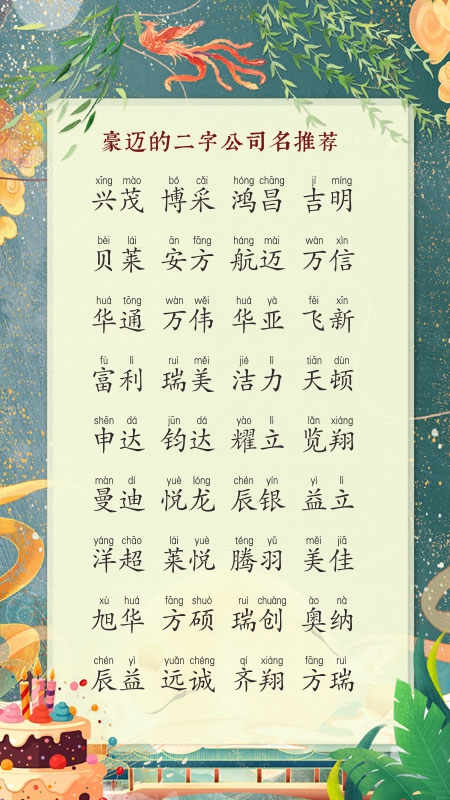 豪迈的二字公司名推荐
xīng mào bó cǎi hóng chāng jí míng
兴茂 博采 鸿昌 吉明
bèi lái ān fāng háng mài wàn xìn
贝莱 安方 航迈 万信
huá tōng wàn wěi huá yà fēi xīn
华通 万伟 华亚 飞新
fù lì ruì měi jié lì tiān dùn
富利 瑞美 洁力 天顿
shēn dá jūn dá yào lì lǎn xiáng
申达 钧达 耀立 览翔
màn dí yuè lóng chén yín yì lì
曼迪 悦龙 辰银 益立
yáng chāo lái yuè téng yǔ měi jiā
洋超 莱悦 腾羽 美佳
xù huá fāng shuò ruì chuàng ào nà
旭华 方硕 瑞创 奥纳
chén yì yuǎn chéng qí xiáng fāng ruì
辰益 远诚 齐翔 方瑞